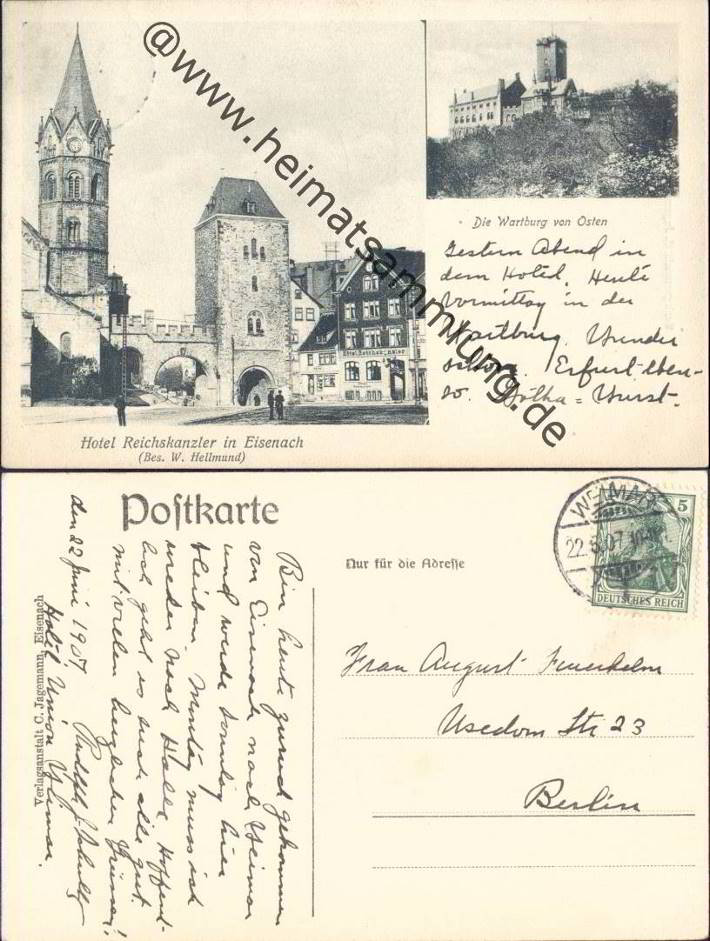 @www.heimatsammlung.de
Hotel Reichskanzler
Die Wartburg von Osten
Gestern Abend in
dem Hotel. Heute
Vormittag in der
Wartburg. Wunder
Erfurt eben-
so. Gotha = Wurst.
Hotel Reichskanzler in Eisenach
(Bes. W. Hellmund)
Postkarte
Nur für die Adresse
WEIMAR
22.6.07.
5
DEUTSCHES REICH
Frau August Feuerhelm
Usedom Str 23
Berlin
Bin heute zurück gekommen
von Eisenach nach Weimar
und werde Sonntag hier
bleiben. Montag muss ich
wieder nach Halle. Hoffent-
lich geht es euch alle gut.
mit vielen herzlichen Grüssen!
Rudolph J. Schultz
den 22 Juni 1907
Hotel Union Weimar.
Verlagsanstalt C. Jagemann, Eisenach